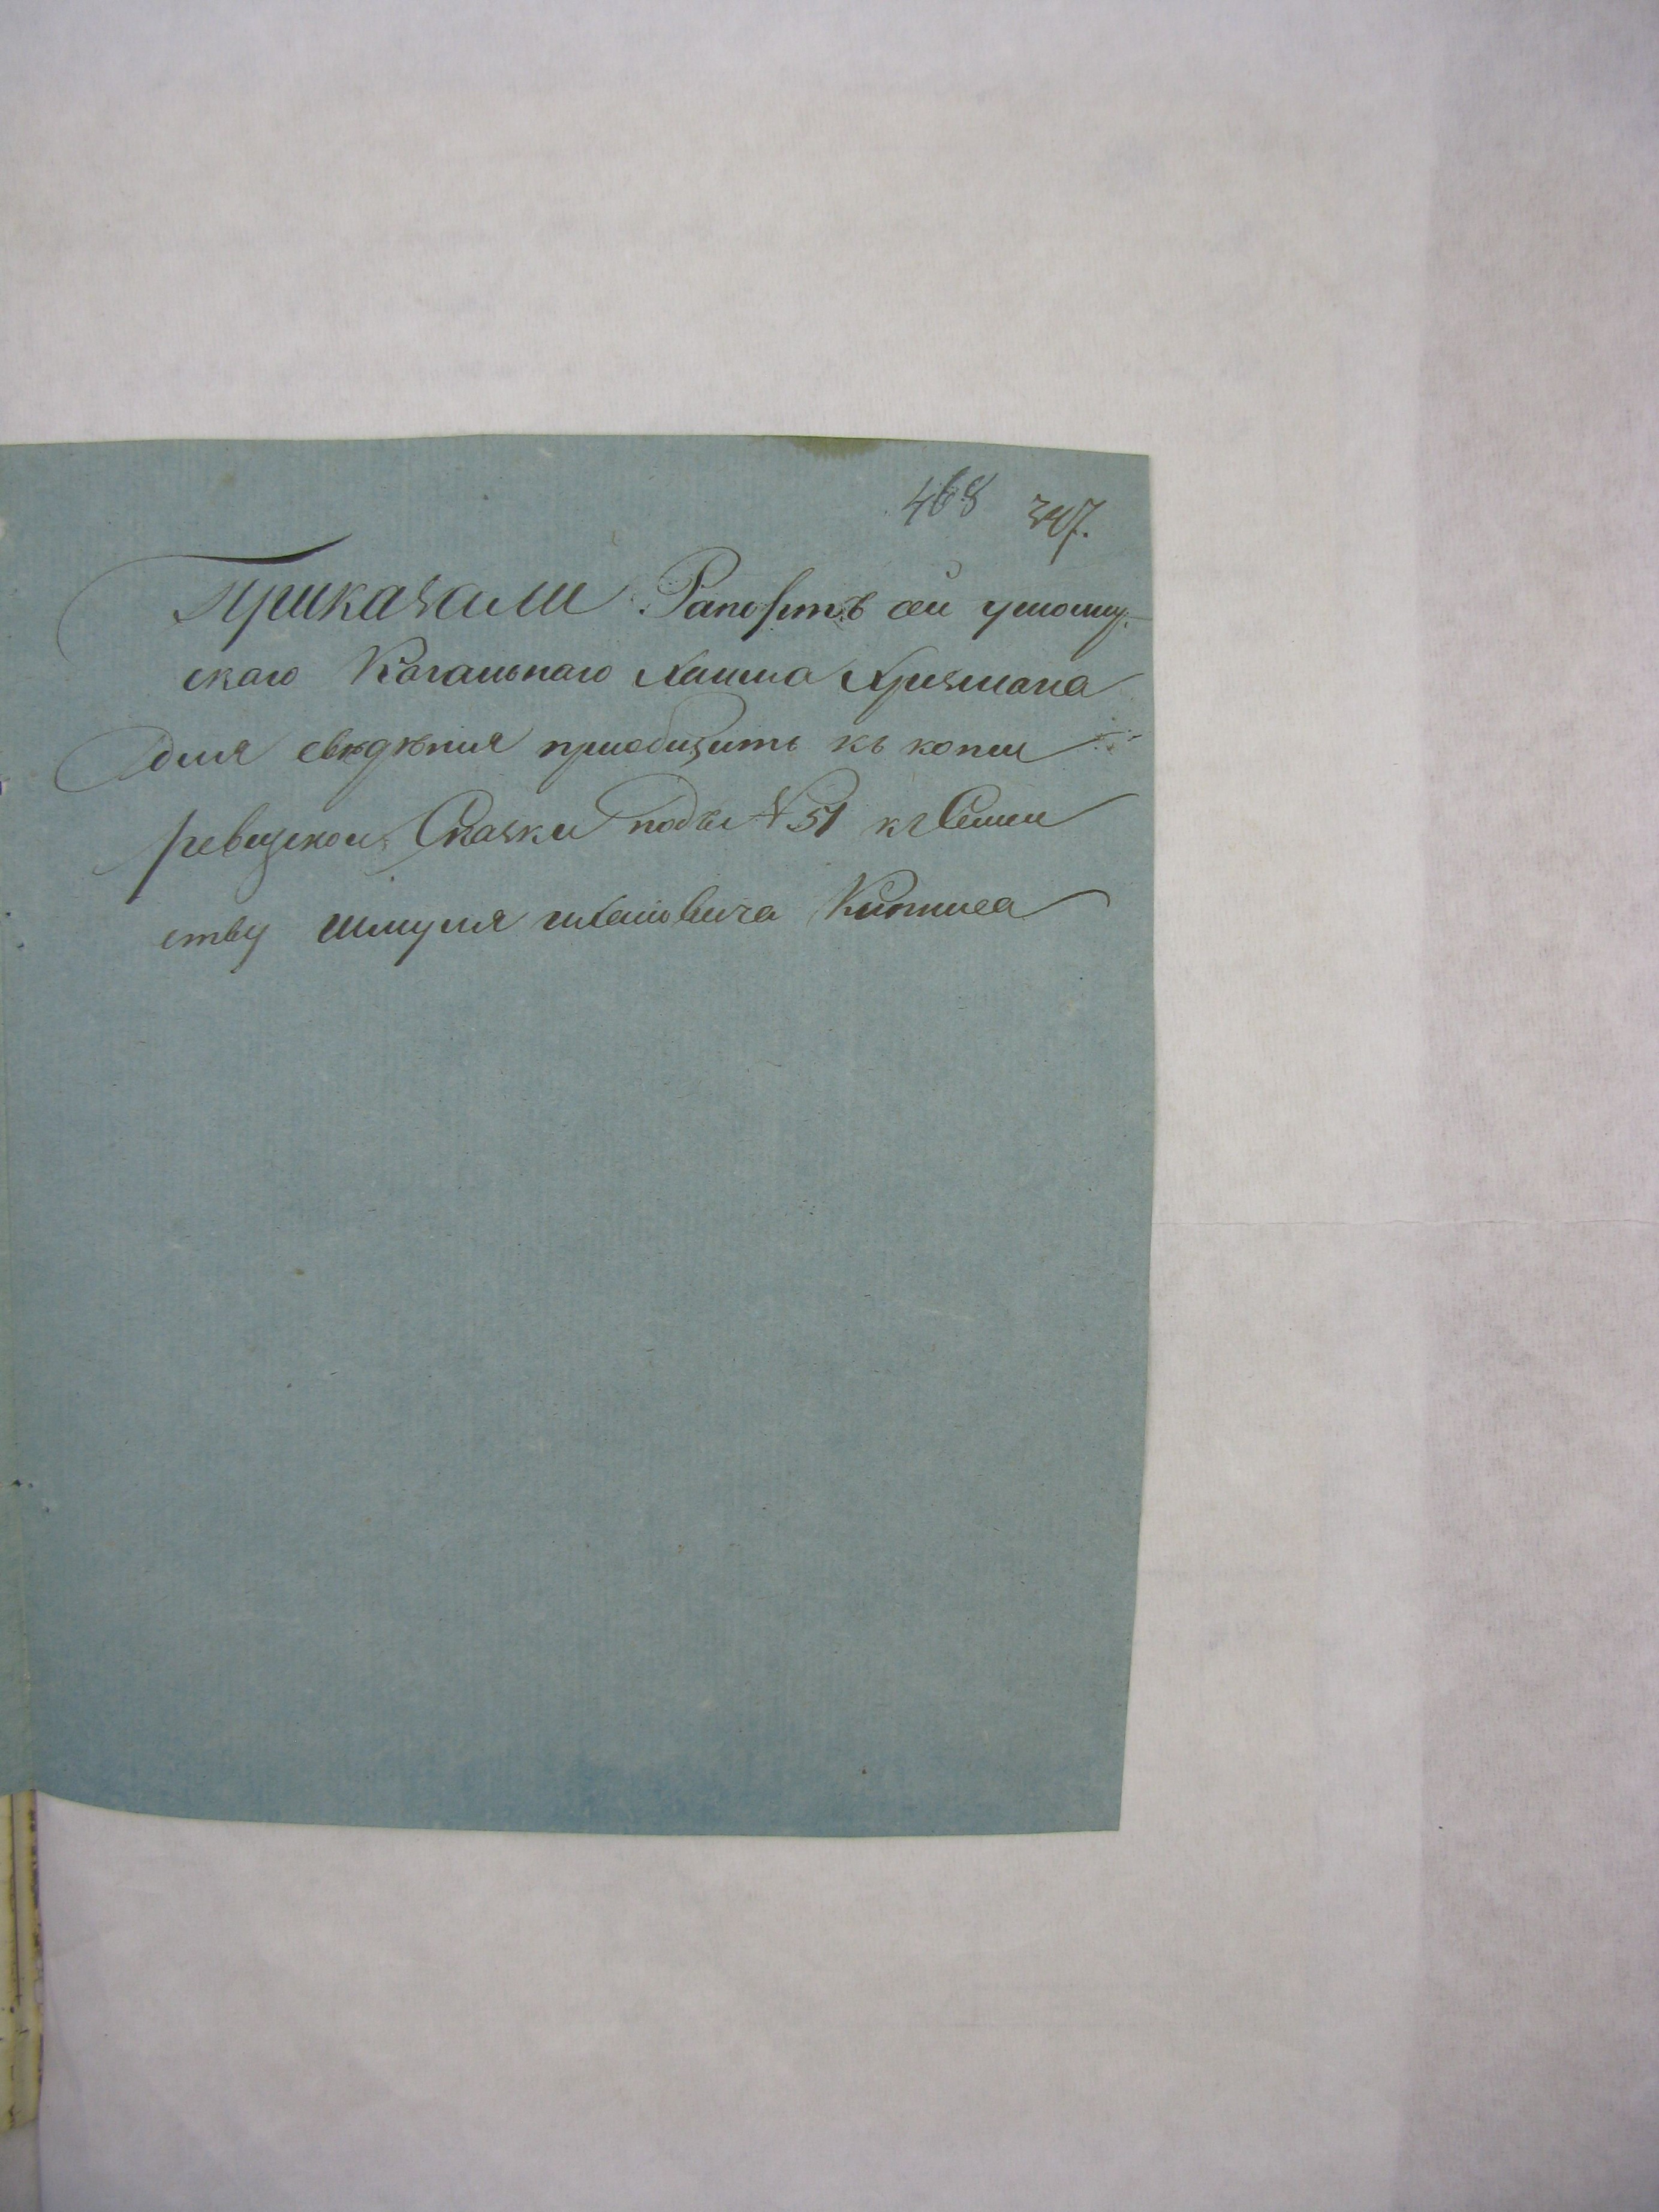 468 347.
Приказали Рапортъ сей
скаго Кагальнаго Хаима
для свѣдѣнія приобщить къ копіи
ревизской Сказки подъ №51 къ Семей
ству Шмуля Ицковича